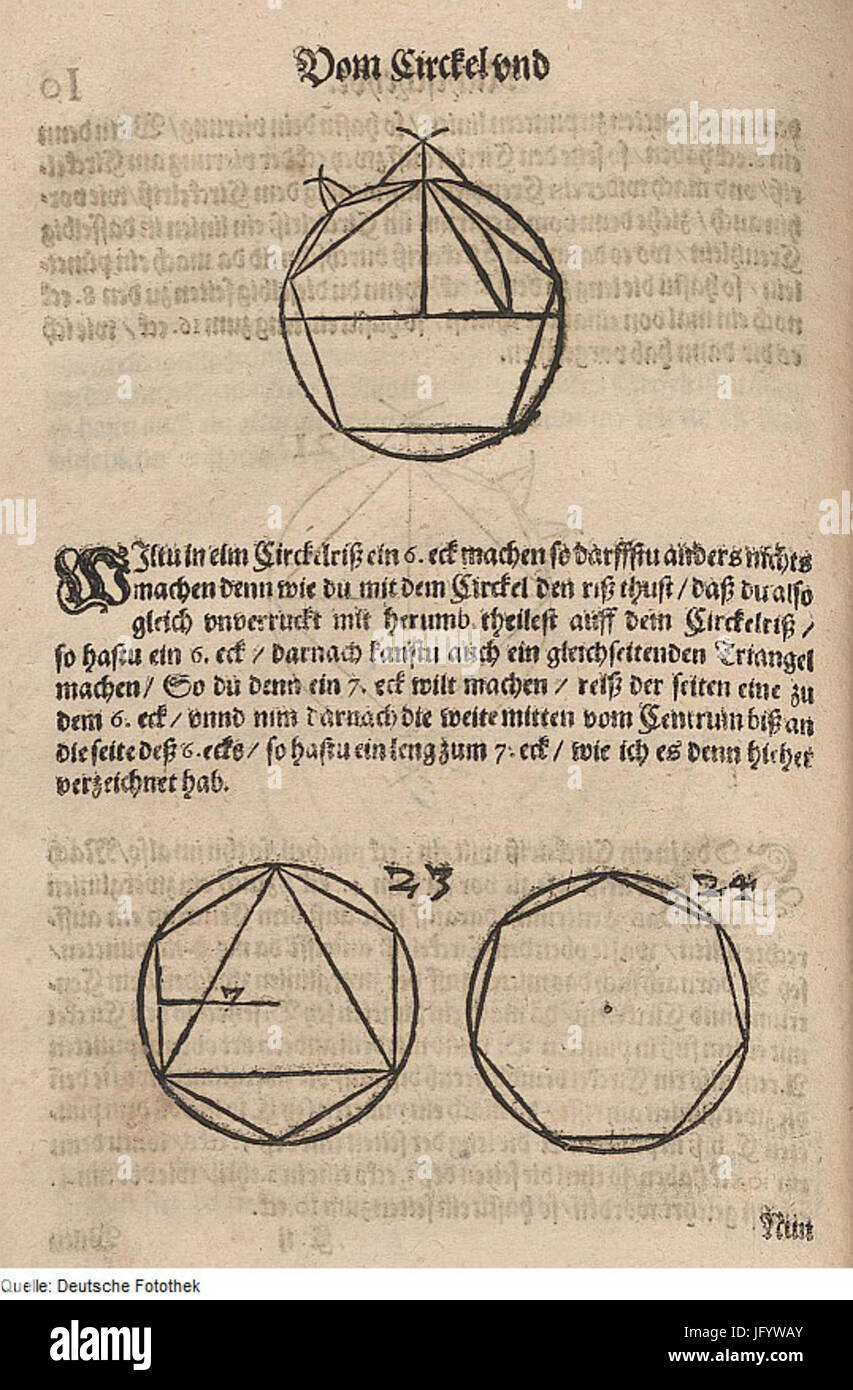 Vom Circkel vnd
WIltu in eim Circkelriß ein 6. eck machen so darffstu anders nichts
machen denn wie du mit dem Circkel den riß thust / daß du also
gleich vnverruckt mit herumb theilest auff dem Circkelriß /
so hastu ein 6. eck / darnach kanstu auch ein gleichseitenden Triangel
machen / So du denn ein 7. eck wilt machen / reiß der seiten eine zu
dem 6. eck / vnnd nim darnach die weite mitten vom Centrum biß an
die seite deß 6. ecks / so hastu ein leng zum 7. eck / wie ich es denn hieher
verzeichnet hab.
23
24
7
Nun
Quelle: Deutsche Fotothek
alamy
Image ID: JFYWAY
www.alamy.com